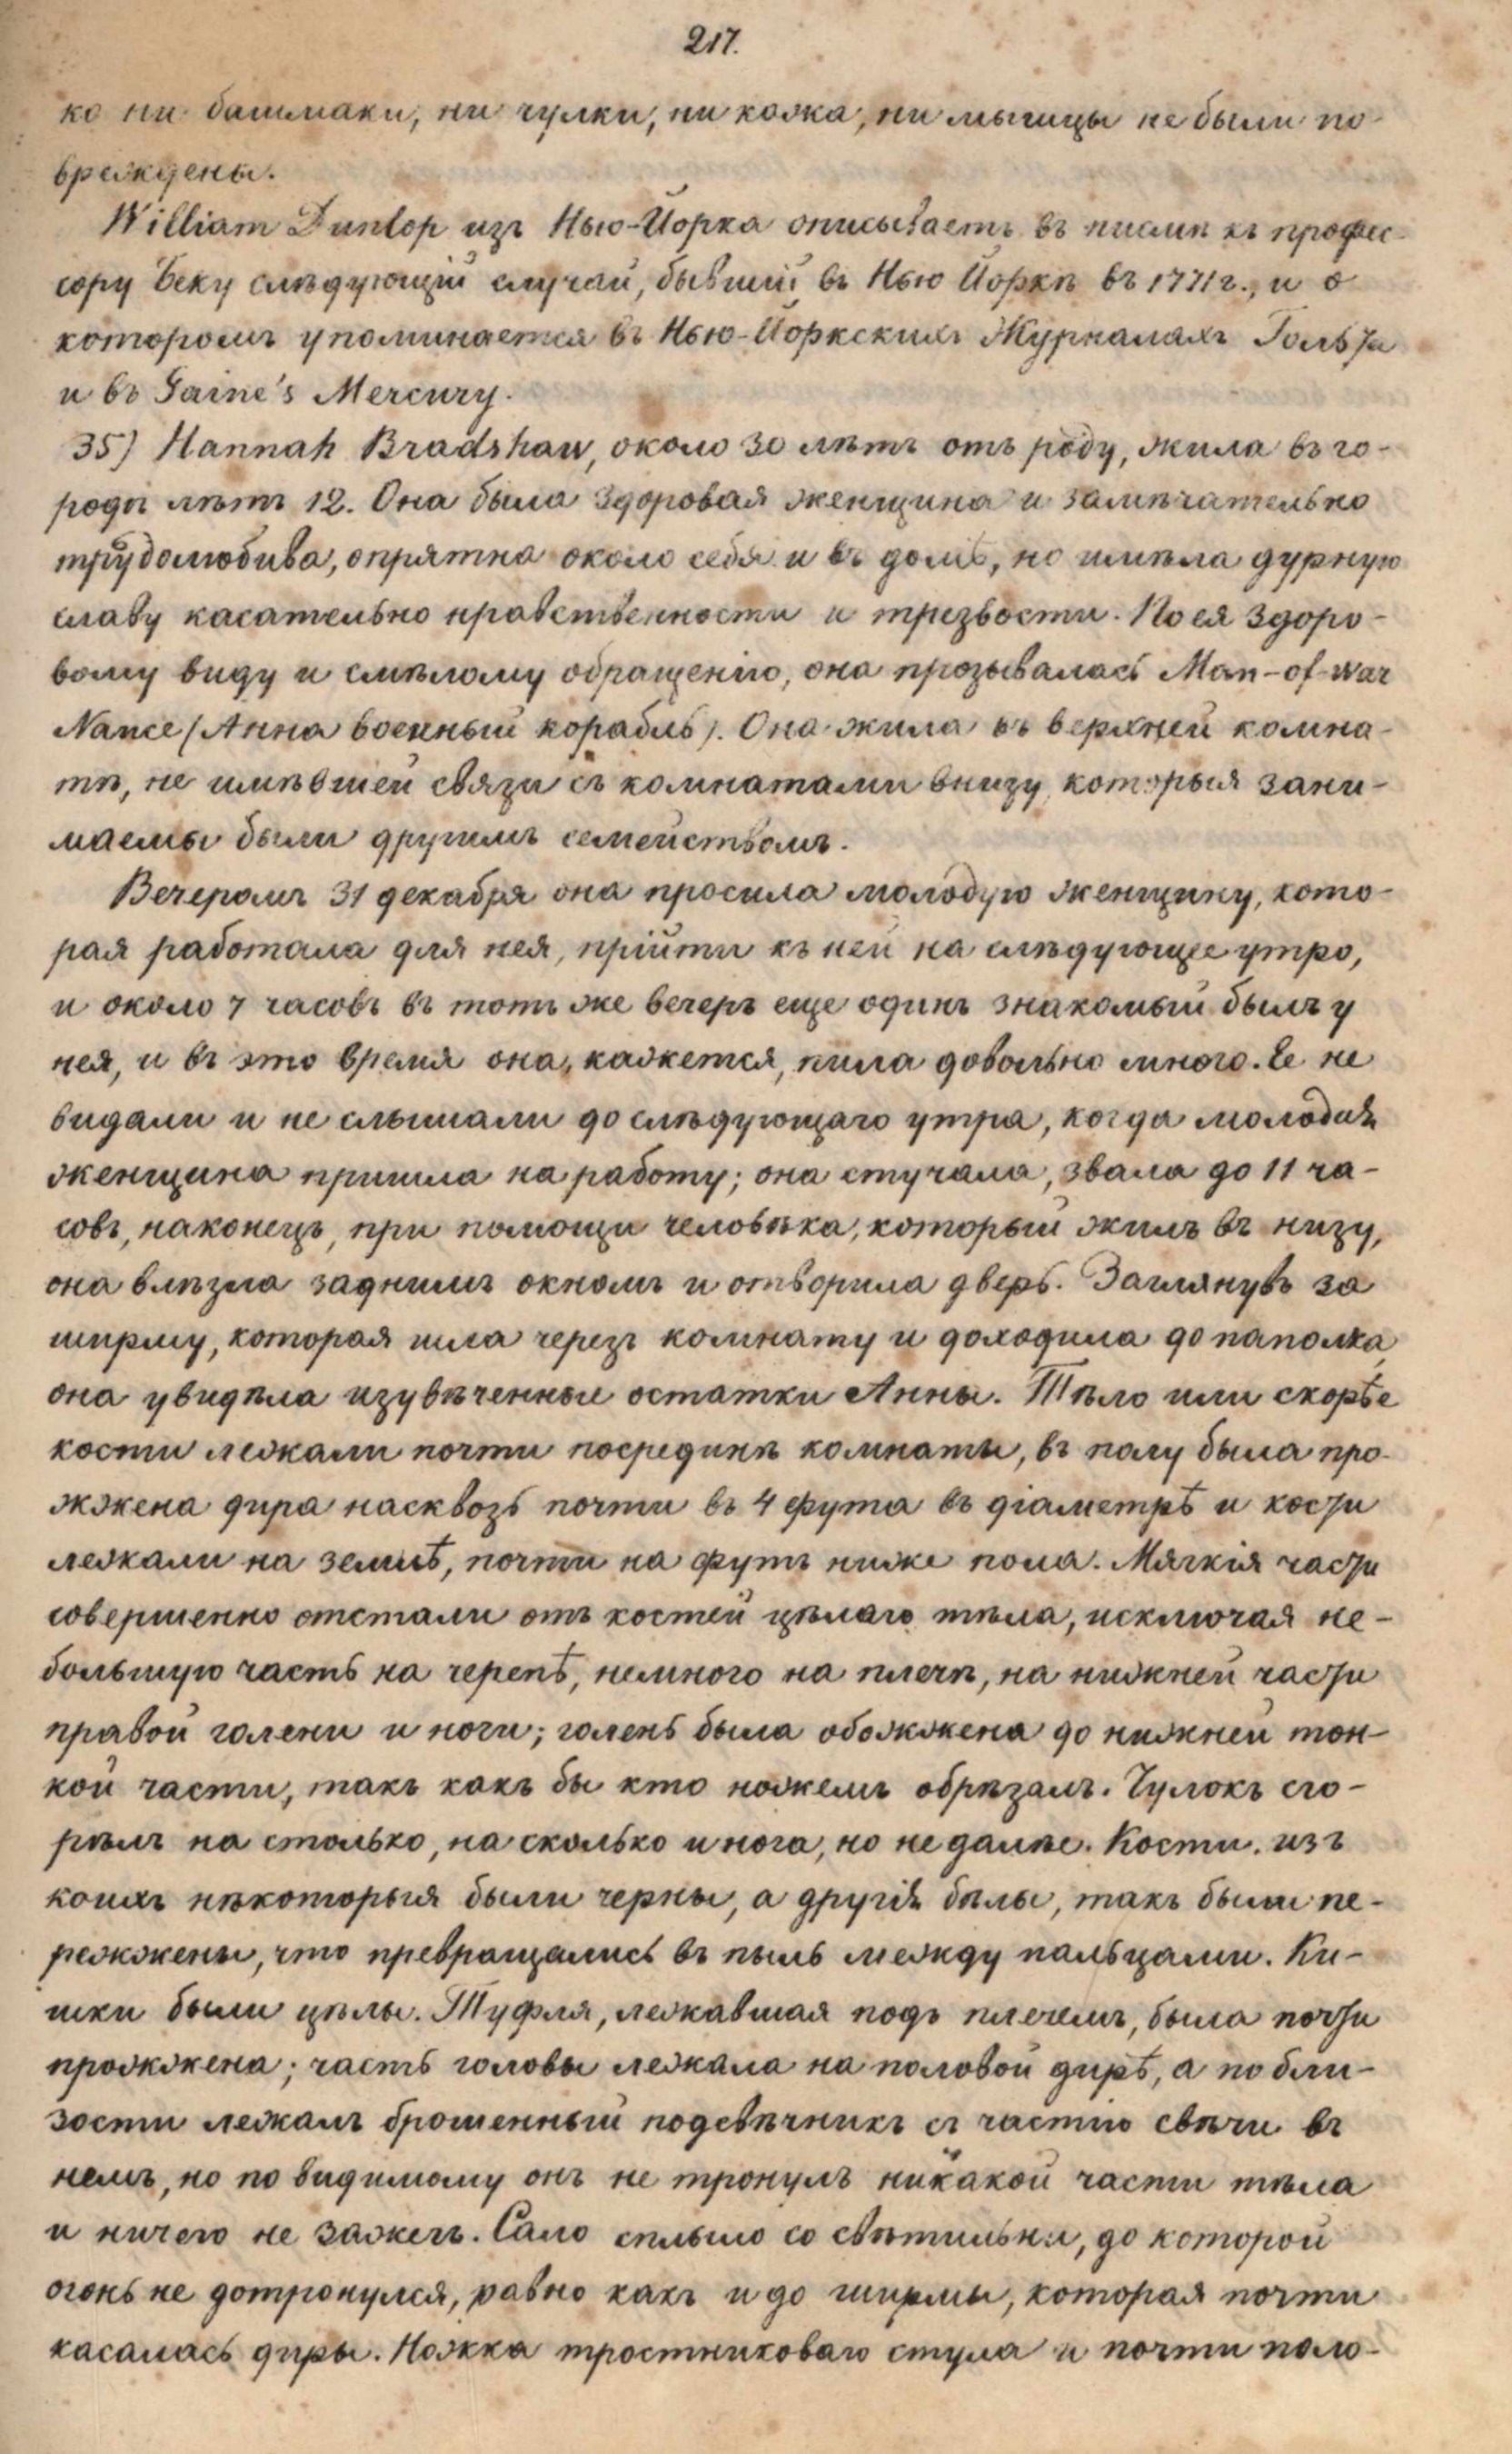 217.
ко ни башмаки, ни чулки, ни кожа, ни мышцы не были по-
вреждены.
William Dunlop изъ Нью-Йорка описываетъ въ письмѣ къ профес-
сору Беку слѣдующій случай, бывшій въ Нью Йоркѣ въ 1771 г., и о
которомъ упоминается въ Нью-Йоркскихъ Журналахъ Гольта
и въ Gaine's Mercury.
35) Hannah Bradshaw, около 30 лѣтъ отъ роду, жила въ го-
родѣ лѣтъ 12. Она была здоровая женщина и замѣчательно
трудолюбива, опрятна около себя и въ домѣ, но имѣла дурную
славу касательно нравственности и трезвости. По ея здоро-
вому виду и смѣлому обращенію, она прозывалась Man-of-war
Nance (Анна военный корабль). Она жила въ верхней комна-
тѣ, не имѣвшей связи съ комнатами внизу, которыя зани-
маемы были другимъ семействомъ.
Вечеромъ 31 декабря она просила молодую женщину, кото-
рая работала для нея, прійти къ ней на слѣдующее утро,
и около 7 часовъ въ тотъ же вечеръ еще одинъ знакомый былъ у
нея, и въ это время она, кажется, пила довольно много. Ее не
видали и не слышали до слѣдующаго утра, когда молодая
женщина пришла на работу; она стучала, звала до 11 ча-
совъ, наконецъ, при помощи человѣка, который жилъ въ низу,
она влѣзла заднимъ окномъ и отворила дверь. Заглянувъ за
ширму, которая шла черезъ комнату и доходила до паполка,
она увидѣла изувѣченные остатки Анны. Тѣло или скорѣе
кости лежали почти посрединѣ комнаты, въ полу была про-
жжена дира насквозь почти въ 4 фута въ діаметрѣ и кости
лежали на землѣ, почти на футъ ниже пола. Мягкія части
совершенно отстали отъ костей цѣлаго тѣла, исключая не-
большую часть на черепѣ, немного на плечѣ, на нижней части
правой голени и ноги; голень была обожжена до нижней тон-
кой части, такъ какъ бы кто ножемъ обрѣзалъ. Чулокъ сго-
рѣлъ на столько, на сколько и нога, но не далѣе. Кости, изъ
коихъ нѣкоторыя были черны, а другія бѣлы, такъ были пе-
режжены, что превращались въ пыль между пальцами. Ки-
шки были цѣлы. Туфля, лежавшая подъ плечемъ, была почти
прожжена; часть головы лежала на половой дирѣ, а по бли-
зости лежалъ брошенный подсвѣчникъ съ частію свѣчи въ
немъ, но по видимому онъ не тронулъ никакой части тѣла
и ничего не зажегъ. Сало сплыло со свѣтильни, до которой
огонь не дотронулся, равно какъ и до ширмы, которая почти
касалась диры. Ножка тростниковаго стула и почти поло-